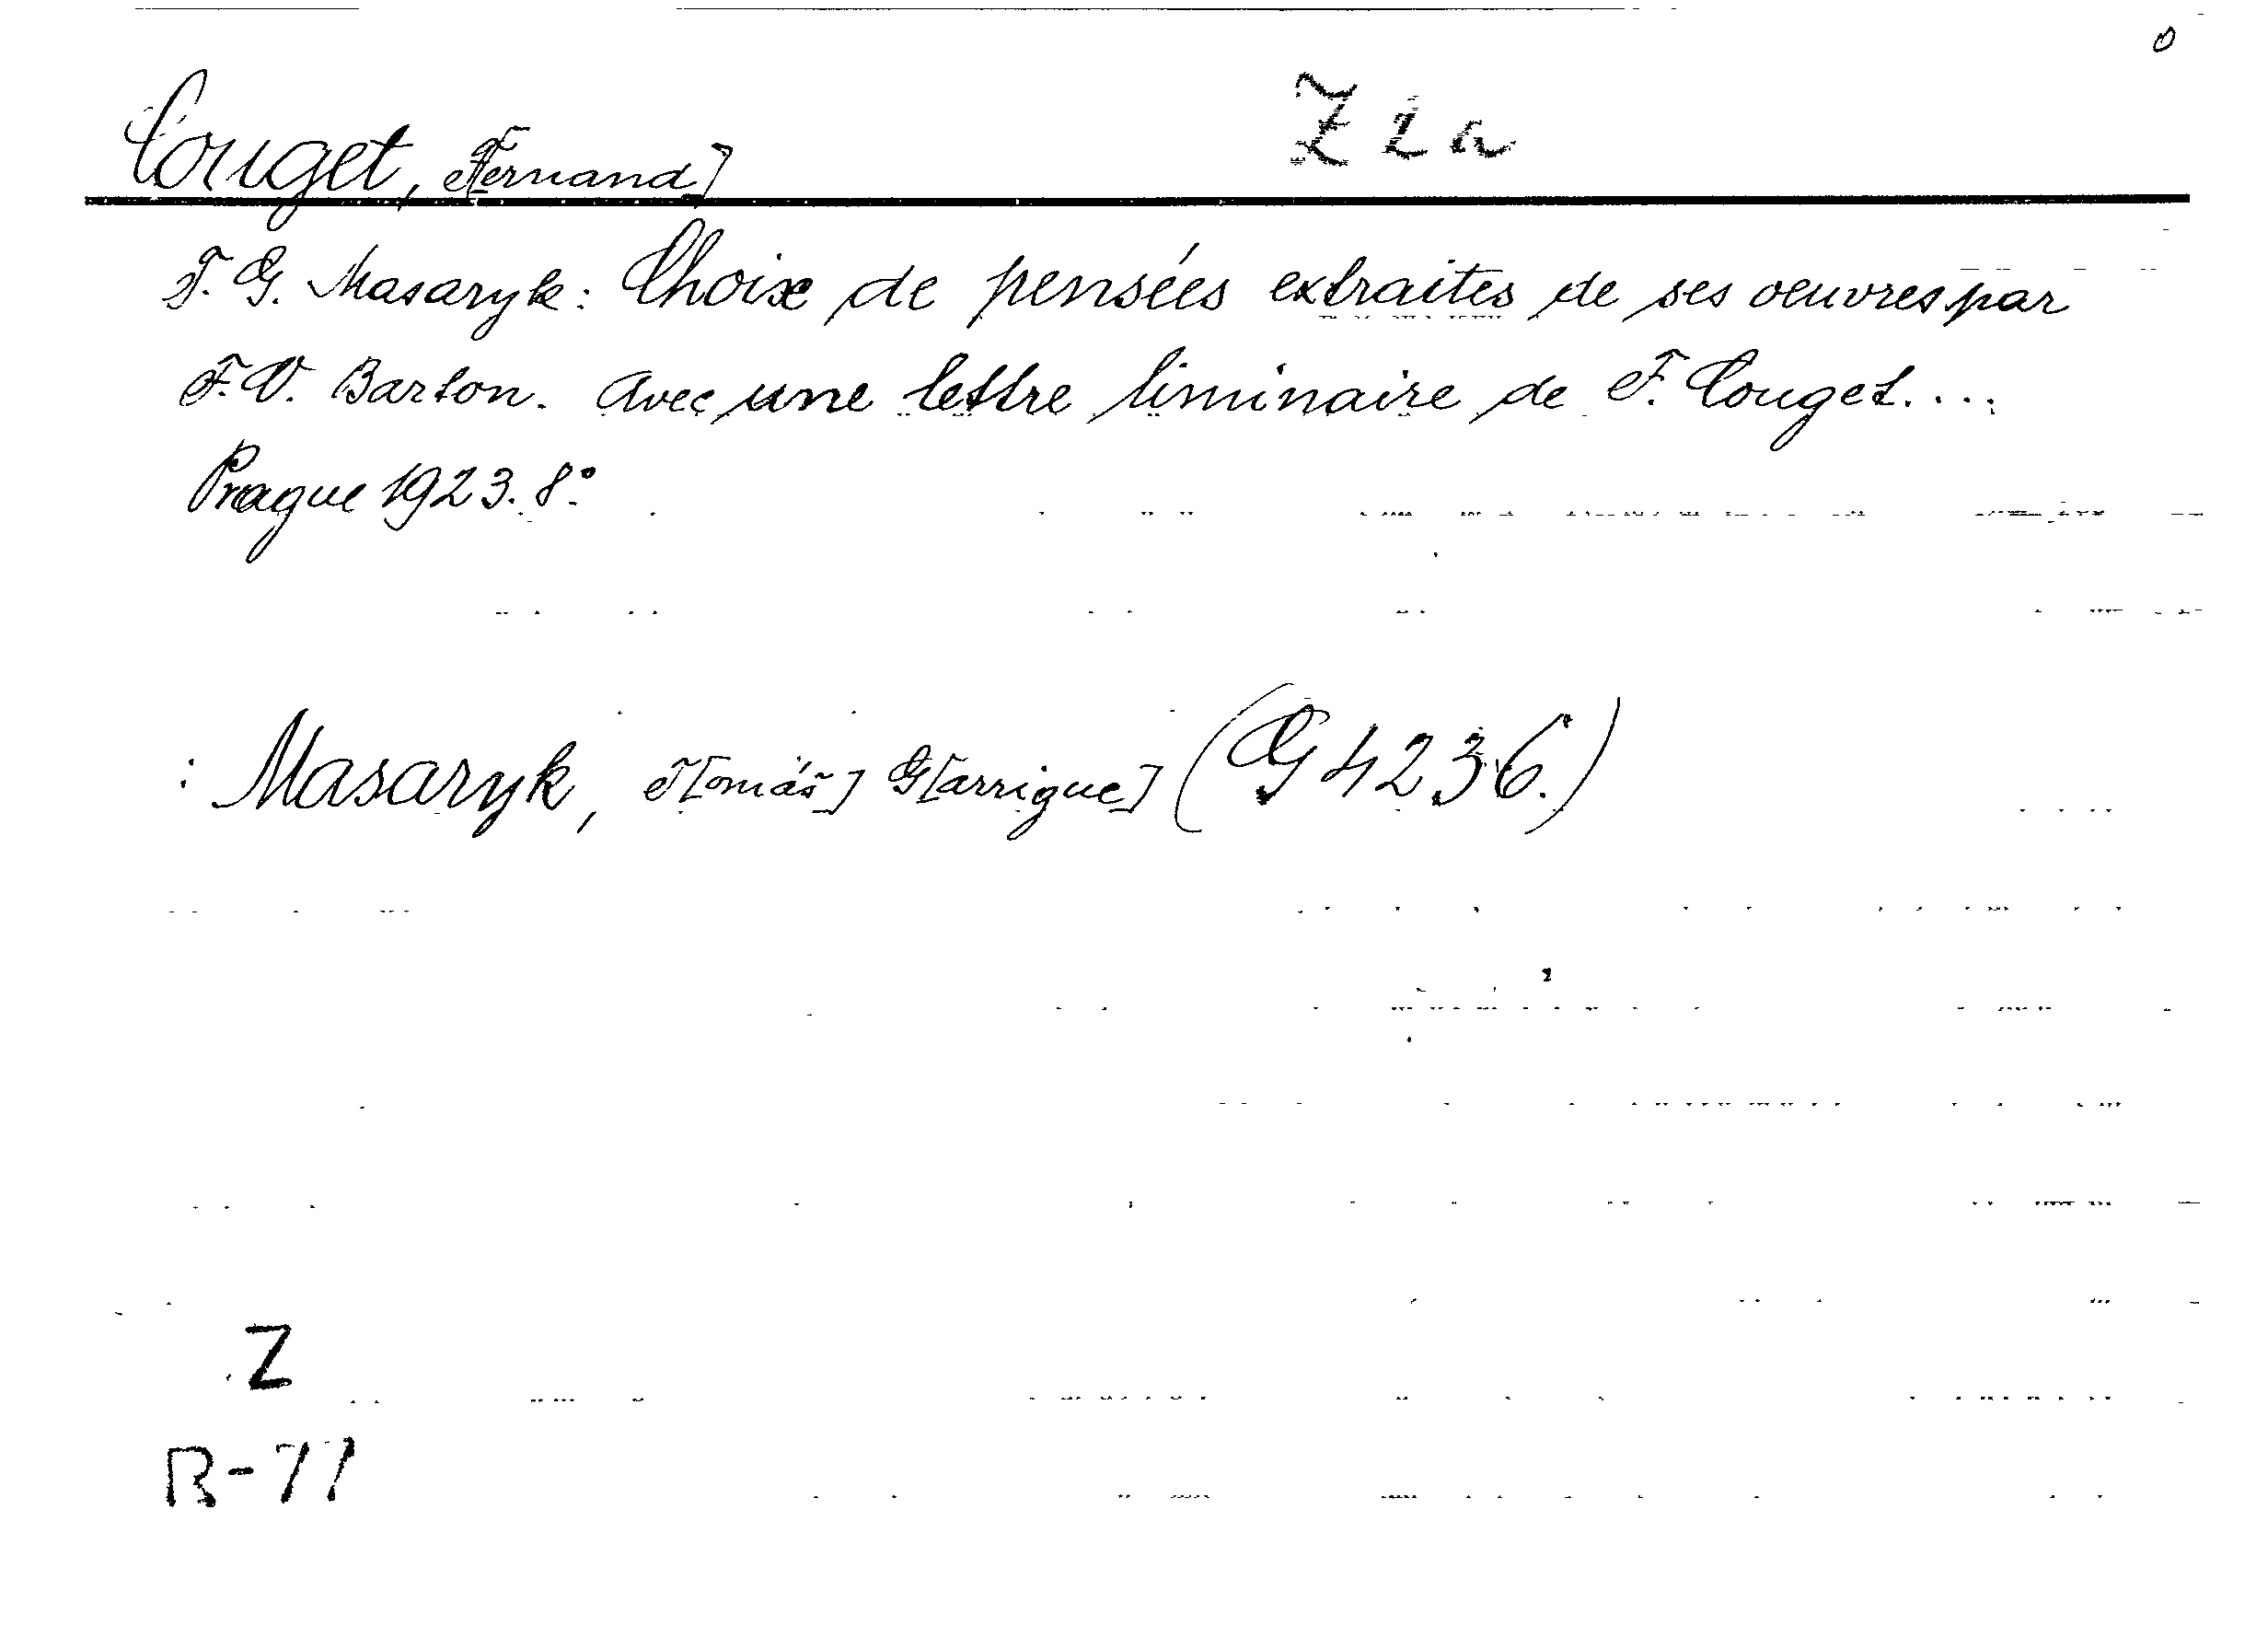 0
Couget, F[ernand] Z 2 a
T. G. Masaryk: Choix de pensées extraites de ses oeuvres par
F. V. Barton. Avec une lettre liminaire de F. Couget....
Prague 1923. 8°.
: Masaryk, T[omáš] G[arrigue] (G 4236.)
Z
R-77